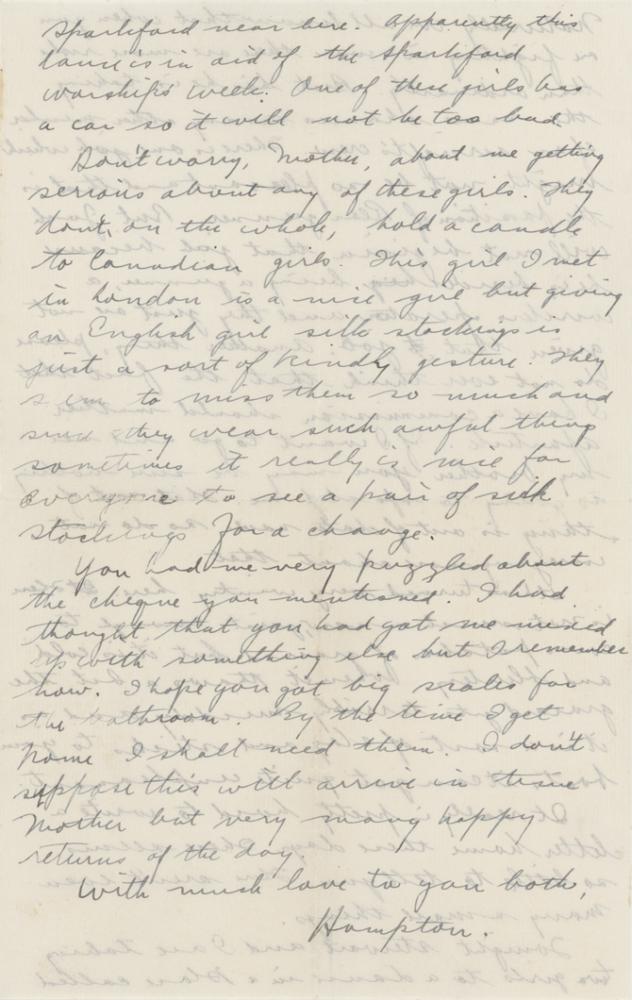 Sparkford near here. Apparently this
dance is in aid of the Sparkford
warships week. One of these girls has
a car so it will not be too bad.
Don't worry, Mother, about me getting
serious about any of these girls. They
don't, on the whole, hold a candle
to Canadian girls. This girl I met
in London is a nice girl but giving
an English girl silk stockings is
just a sort of kindly gesture. They
seem to miss them so much and
since they wear such awful things
sometimes it really is nice for
everyone to see a pair of silk
stockings for a change.
You had me very puzzled about
the cheque you mentioned. I had
thought that you had got me mixed
up with something else but I remember
now. I hope you got big scales for
the bathroom. By the time I get
home I shall need them. I don't
suppose this will arrive in time
Mother but very many happy
returns of the day.
With much love to you both,
Hampton.